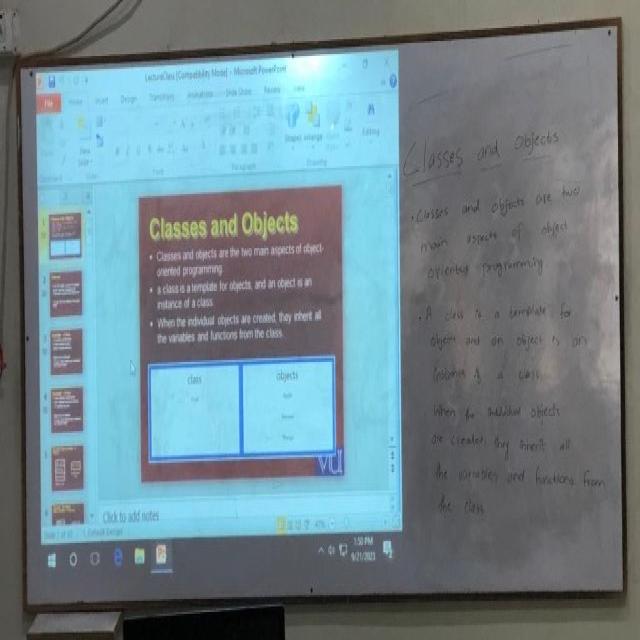 LectureClass [Compatibility Mode] - Microsoft PowerPoint
File
Home
Insert
Design
Transitions
Animations
Slide Show
Review
View
Shapes
Arrange
Editing
Paragraph
Drawing
Classes and Objects
• Classes and objects are the two main aspects of object-
oriented programming.
• a class is a template for objects, and an object is an
instance of a class.
• When the individual objects are created, they inherit all
the variables and functions from the class.
class
objects
Fruit
Apple
Banana
Mango
VU
Click to add notes
47%
1:50 PM
9/21/2023
Classes and Objects
• Classes and objects are two
main aspects of object
oriented programming
• A class is a template for
objects and an object is an
instance of a class
When the individual objects
are created, they inherit all
the variables and functions from
the class